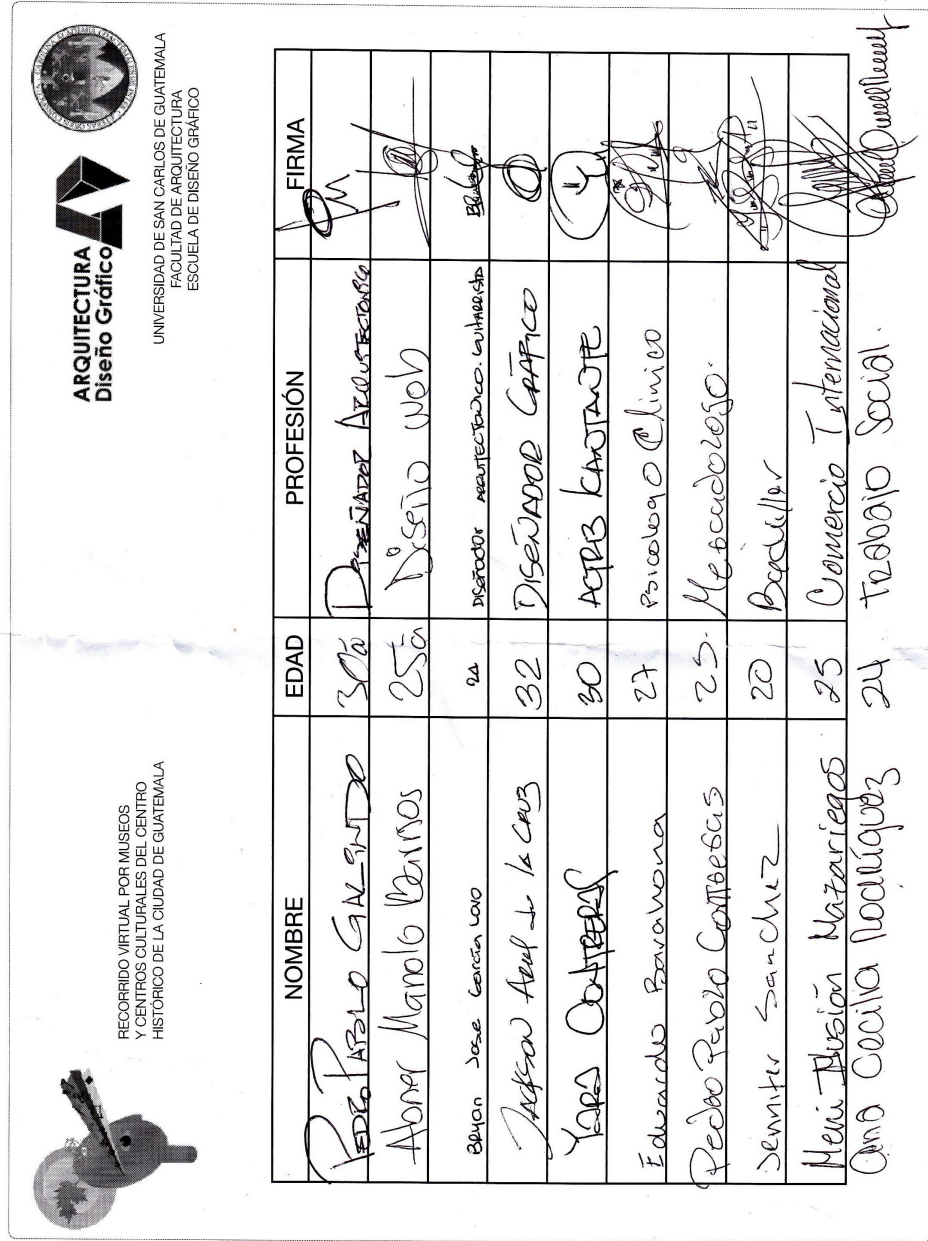 RECORRIDO VIRTUAL POR MUSEOS
Y CENTROS CULTURALES DEL CENTRO
HISTÓRICO DE LA CIUDAD DE GUATEMALA
ARQUITECTURA
Diseño Gráfico
UNIVERSIDAD DE SAN CARLOS DE GUATEMALA
FACULTAD DE ARQUITECTURA
ESCUELA DE DISEÑO GRÁFICO
NOMBRE EDAD PROFESIÓN FIRMA
PEDRO PABLO GALINDO 30a DISEÑADOR ARQUITECTONICO
Abner Manolo 25a Diseño Web
Bryan Jose García 24 Diseñador ARQUITECTONICO. Guitarrista
JACKSON de la CRUZ 32 DISEÑADOR GRÁFICO
YARA CONTRERAS 30 ACTRIZ KANTANTE
Eduardo Barahona 27 Psicologo Clinico
Pedro Pablo 25. Mercadologo.
Jennifer Sanchez 20 Bachiller
Ilusión Mazariegos 25 Comercio Internacional
Ana Cecilia Rodríguez 24 Trabajo Social.